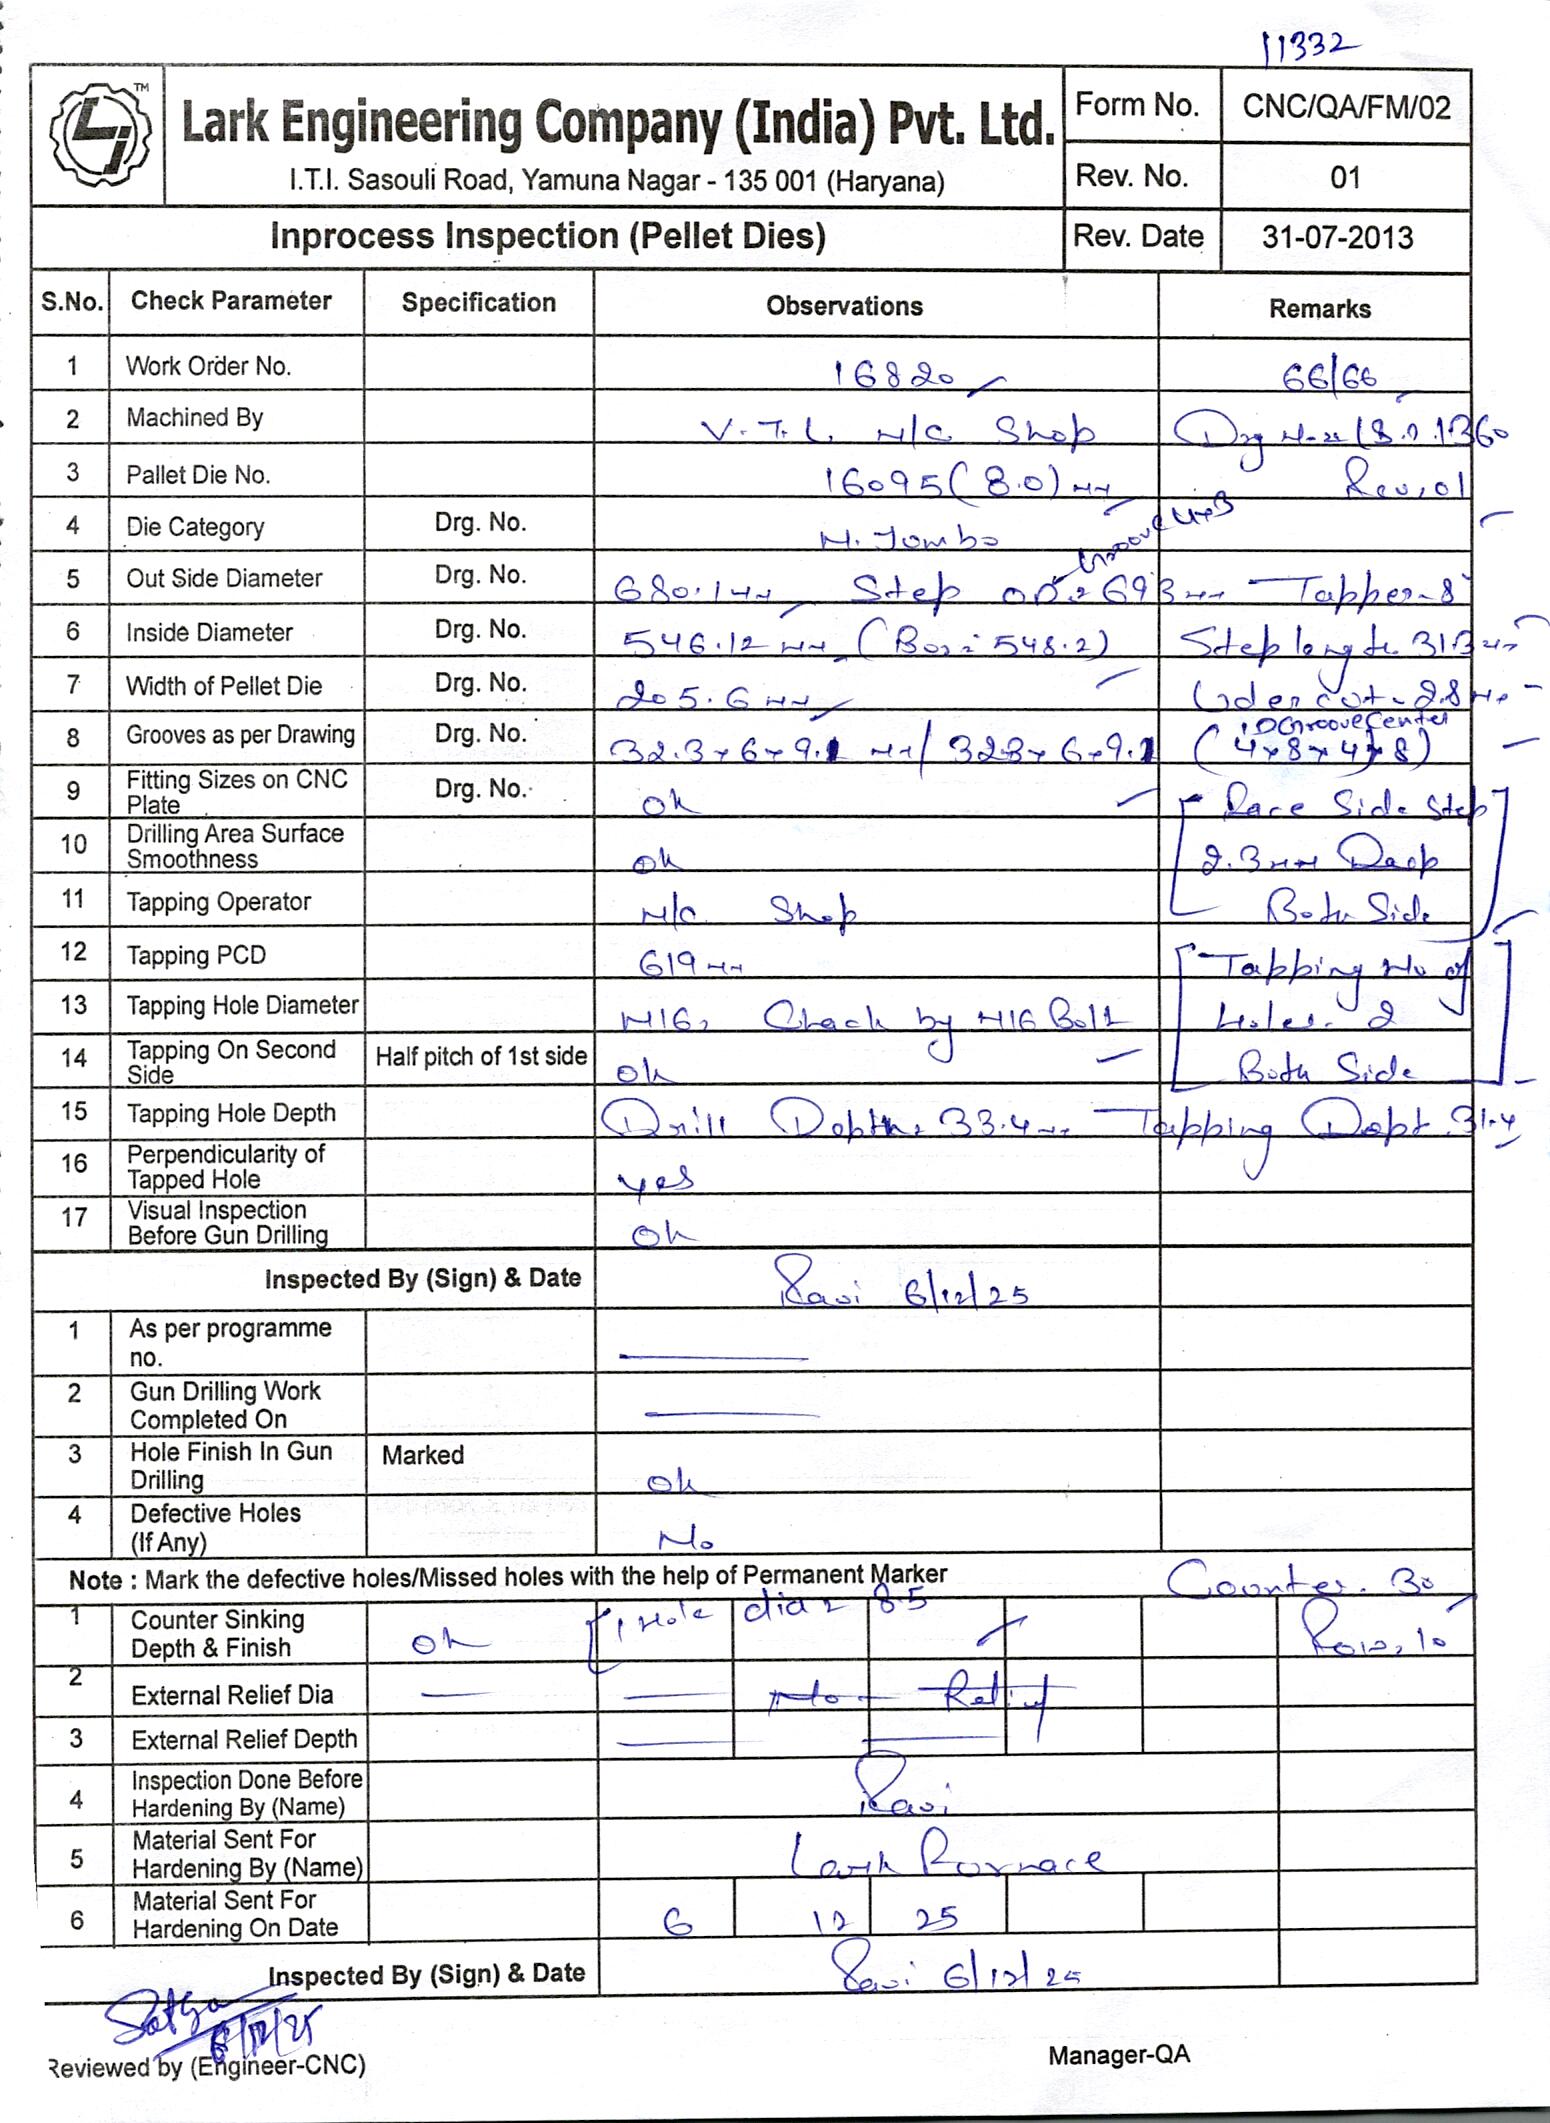 11332
LJ TM
Lark Engineering Company (India) Pvt. Ltd.
I.T.I. Sasouli Road, Yamuna Nagar - 135 001 (Haryana)
Form No. CNC/QA/FM/02
Rev. No. 01
Inprocess Inspection (Pellet Dies) Rev. Date 31-07-2013
S.No. Check Parameter Specification Observations Remarks
1 Work Order No. 16820 66/66
2 Machined By V.T.L M/C Shop Drg
3 Pallet Die No. 16095(8.0)mm Rev.01
4 Die Category Drg. No. M. Jumbo
5 Out Side Diameter Drg. No. 680.1mm Step OD= 693mm Tapper-8°
6 Inside Diameter Drg. No. 546.12mm (Bor: 548.2) Step length 31.3mm
7 Width of Pellet Die Drg. No. 205.6mm Under cut - 2.8mm
ID Groove Center
8 Grooves as per Drawing Drg. No. 32.3x6x9.1mm/ 32.3x6x9.1 (4x8x4x8)
9 Fitting Sizes on CNC Plate Drg. No. Ok Race Side Step
10 Drilling Area Surface Smoothness Ok 2.3mm Deep
11 Tapping Operator M/C Shop Both Side
12 Tapping PCD 619mm Tapping No of
13 Tapping Hole Diameter M16, Check by M16 Bolt Holes. 2
14 Tapping On Second Side Half pitch of 1st side Ok Both Side
15 Tapping Hole Depth Drill Depth. 33.4mm Tapping Dept. 31.4
16 Perpendicularity of Tapped Hole yes
17 Visual Inspection Before Gun Drilling Ok
Inspected By (Sign) & Date Ravi 6/12/25
1 As per programme no.
2 Gun Drilling Work Completed On
3 Hole Finish In Gun Drilling Marked Ok
4 Defective Holes (If Any) No
Note : Mark the defective holes/Missed holes with the help of Permanent Marker Counter. 30
1 Counter Sinking Depth & Finish Ok 1 Hole dia = 8.5 Row. 10
2 External Relief Dia No Relief
3 External Relief Depth
4 Inspection Done Before Hardening By (Name) Ravi
5 Material Sent For Hardening By (Name) Lark Furnace
6 Material Sent For Hardening On Date 6 12 25
Inspected By (Sign) & Date Ravi 6/12/25
Satya
6/12/25
Reviewed by (Engineer-CNC) Manager-QA